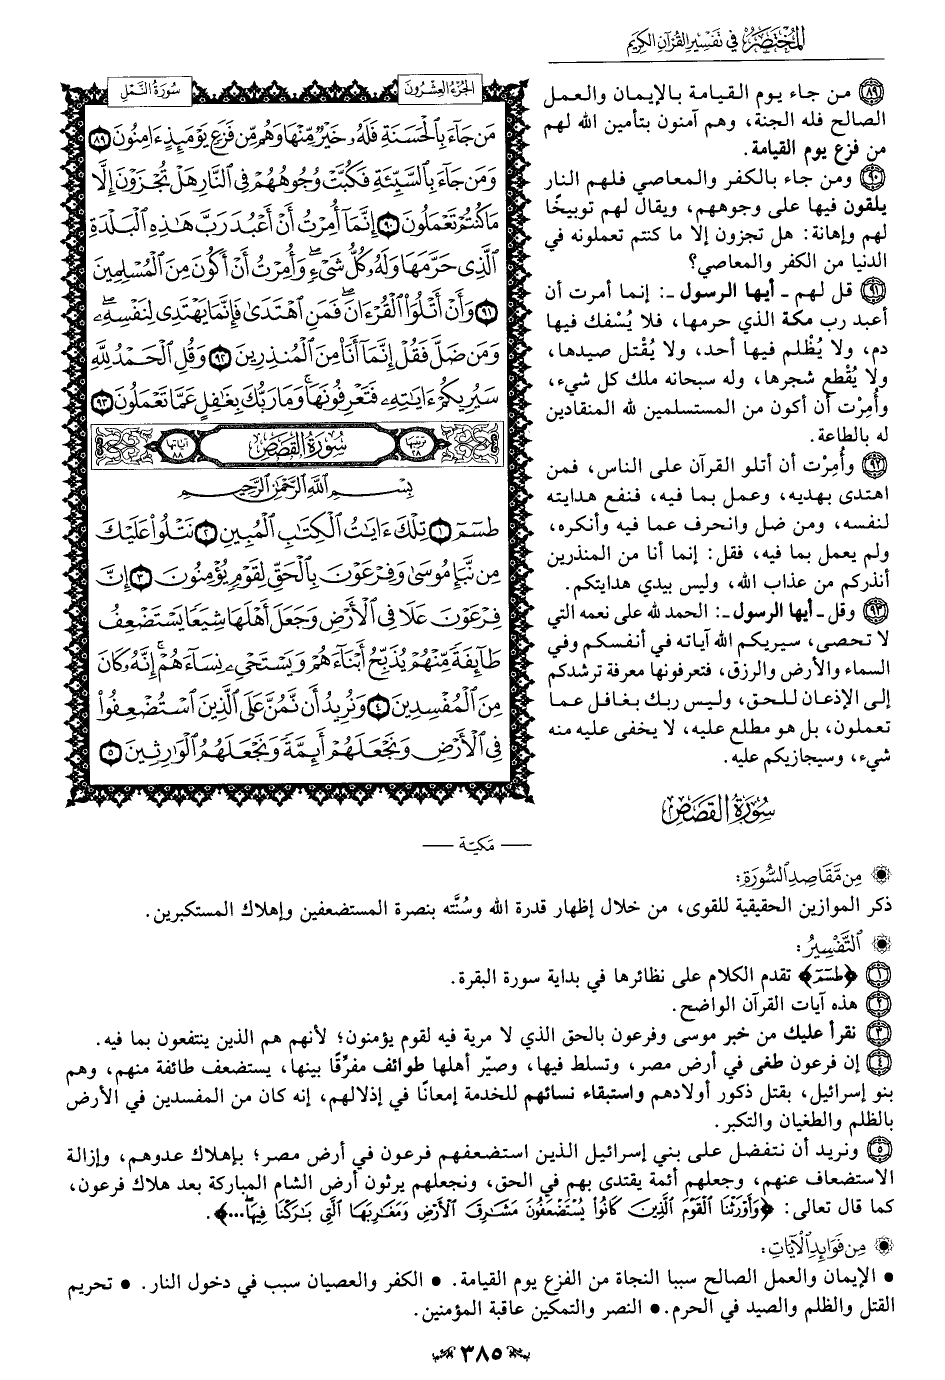 المختصر في تفسير القرآن الكريم
الجزء العشرون
سورة النمل
مَن جَآءَ بِٱلۡحَسَنَةِ فَلَهُۥ خَيۡرٞ مِّنۡهَا وَهُم مِّن فَزَعٖ يَوۡمَئِذٍ ءَامِنُونَ ٨٩
وَمَن جَآءَ بِٱلسَّيِّئَةِ فَكُبَّتۡ وُجُوهُهُمۡ فِي ٱلنَّارِ هَلۡ تُجۡزَوۡنَ إِلَّا
مَا كُنتُمۡ تَعۡمَلُونَ ٩٠ إِنَّمَآ أُمِرۡتُ أَنۡ أَعۡبُدَ رَبَّ هَٰذِهِ ٱلۡبَلۡدَةِ
ٱلَّذِي حَرَّمَهَا وَلَهُۥ كُلُّ شَيۡءٖۖ وَأُمِرۡتُ أَنۡ أَكُونَ مِنَ ٱلۡمُسۡلِمِينَ
٩١ وَأَنۡ أَتۡلُوَاْ ٱلۡقُرۡءَانَۖ فَمَنِ ٱهۡتَدَىٰ فَإِنَّمَا يَهۡتَدِي لِنَفۡسِهِۦۖ
وَمَن ضَلَّ فَقُلۡ إِنَّمَآ أَنَا۠ مِنَ ٱلۡمُنذِرِينَ ٩٢ وَقُلِ ٱلۡحَمۡدُ لِلَّهِ
سَيُرِيكُمۡ ءَايَٰتِهِۦ فَتَعۡرِفُونَهَاۚ وَمَا رَبُّكَ بِغَٰفِلٍ عَمَّا تَعۡمَلُونَ ٩٣
ترتيبها ٢٨ سورة القصص آياتها ٨٨
بِسۡمِ ٱللَّهِ ٱلرَّحۡمَٰنِ ٱلرَّحِيمِ
طسٓمٓ ١ تِلۡكَ ءَايَٰتُ ٱلۡكِتَٰبِ ٱلۡمُبِينِ ٢ نَتۡلُواْ عَلَيۡكَ
مِن نَّبَإِ مُوسَىٰ وَفِرۡعَوۡنَ بِٱلۡحَقِّ لِقَوۡمٖ يُؤۡمِنُونَ ٣ إِنَّ
فِرۡعَوۡنَ عَلَا فِي ٱلۡأَرۡضِ وَجَعَلَ أَهۡلَهَا شِيَعٗا يَسۡتَضۡعِفُ
طَآئِفَةٗ مِّنۡهُمۡ يُذَبِّحُ أَبۡنَآءَهُمۡ وَيَسۡتَحۡيِۦ نِسَآءَهُمۡۚ إِنَّهُۥ كَانَ
مِنَ ٱلۡمُفۡسِدِينَ ٤ وَنُرِيدُ أَن نَّمُنَّ عَلَى ٱلَّذِينَ ٱسۡتُضۡعِفُواْ
فِي ٱلۡأَرۡضِ وَنَجۡعَلَهُمۡ أَئِمَّةٗ وَنَجۡعَلَهُمُ ٱلۡوَٰرِثِينَ ٥
٨٩ من جاء يوم القيامة بالإيمان والعمل
الصالح فله الجنة، وهم آمنون بتأمين الله لهم
من فزع يوم القيامة.
٩٠ ومن جاء بالكفر والمعاصي فلهم النار
يلقون فيها على وجوههم، ويقال لهم توبيخًا
لهم وإهانة: هل تجزون إلا ما كنتم تعملونه في
الدنيا من الكفر والمعاصي؟
٩١ قل لهم - أيها الرسول -: إنما أمرت أن
أعبد رب مكة الذي حرمها، فلا يُسْفك فيها
دم، ولا يُظْلم فيها أحد، ولا يُقْتل صيدها،
ولا يُقْطع شجرها، وله سبحانه ملك كل شيء،
وأُمِرْت أن أكون من المستسلمين لله المنقادين
له بالطاعة.
٩٢ وأُمِرْت أن أتلو القرآن على الناس، فمن
اهتدى بهديه، وعمل بما فيه، فنفع هدايته
لنفسه، ومن ضل وانحرف عما فيه وأنكره،
ولم يعمل بما فيه، فقل: إنما أنا من المنذرين
أنذركم من عذاب الله، وليس بيدي هدايتكم.
٩٣ وقل - أيها الرسول -: الحمد لله على نعمه التي
لا تحصى، سيريكم الله آياته في أنفسكم وفي
السماء والأرض والرزق، فتعرفونها معرفة ترشدكم
إلى الإذعان للحق، وليس ربك بغافل عما
تعملون، بل هو مطلع عليه، لا يخفى عليه منه
شيء، وسيجازيكم عليه.
سورة القصص
— مَكيّة —
من مقاصد السورة:
ذكر الموازين الحقيقية للقوى، من خلال إظهار قدرة الله وسُنَّته بنصرة المستضعفين وإهلاك المستكبرين.
التفسير:
١ ﴿طسٓمٓ﴾ تقدم الكلام على نظائرها في بداية سورة البقرة.
٢ هذه آيات القرآن الواضح.
٣ نقرأ عليك من خبر موسى وفرعون بالحق الذي لا مرية فيه لقوم يؤمنون؛ لأنهم هم الذين ينتفعون بما فيه.
٤ إن فرعون طغى في أرض مصر، وتسلط فيها، وصيّر أهلها طوائف مفرِّقًا بينها، يستضعف طائفة منهم، وهم
بنو إسرائيل، بقتل ذكور أولادهم واستبقاء نسائهم للخدمة إمعانًا في إذلالهم، إنه كان من المفسدين في الأرض
بالظلم والطغيان والتكبر.
٥ ونريد أن نتفضل على بني إسرائيل الذين استضعفهم فرعون في أرض مصر؛ بإهلاك عدوهم، وإزالة
الاستضعاف عنهم، وجعلهم أئمة يقتدى بهم في الحق، ونجعلهم يرثون أرض الشام المباركة بعد هلاك فرعون،
كما قال تعالى: ﴿وَأَوۡرَثۡنَا ٱلۡقَوۡمَ ٱلَّذِينَ كَانُواْ يُسۡتَضۡعَفُونَ مَشَٰرِقَ ٱلۡأَرۡضِ وَمَغَٰرِبَهَا ٱلَّتِي بَٰرَكۡنَا فِيهَاۖ...﴾.
من فوائد الآيات:
• الإيمان والعمل الصالح سببا النجاة من الفزع يوم القيامة. • الكفر والعصيان سبب في دخول النار. • تحريم
القتل والظلم والصيد في الحرم. • النصر والتمكين عاقبة المؤمنين.
٣٨٥